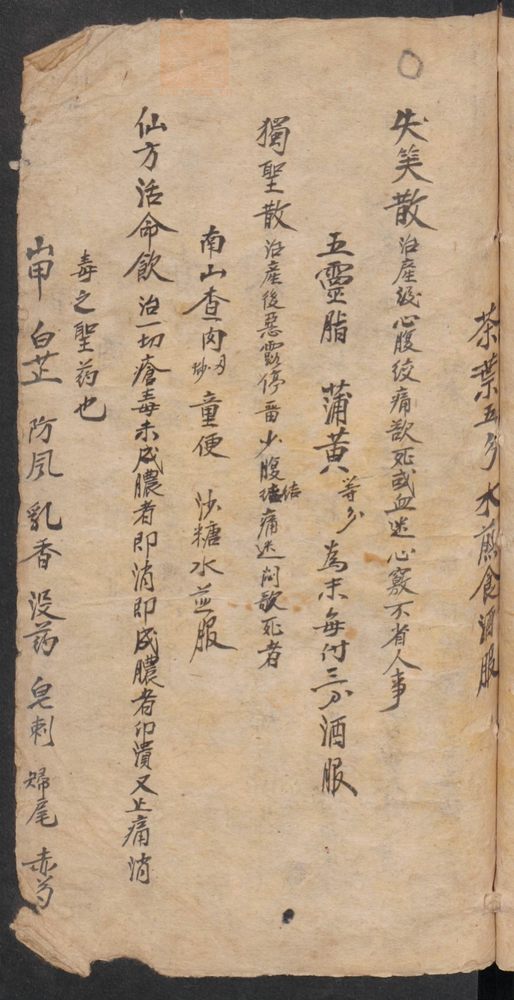 茶葉五分水煎食酒服
失笑散治產後心腹绞痛欲死或血迷心竅不省人事
五靈脂 蒲黃等分為末每付三分酒服
獨聖散治產後惡露停畱少腹結痛迷悶欲死者
南山查肉炒 童便 沙糖水並服
仙方活命飲治一切瘡毒未成膿者即消即成膿者即潰又止痛消
毒之聖药也
山甲 白芷 防风 乳香 没药 皂刺 歸尾 赤芍